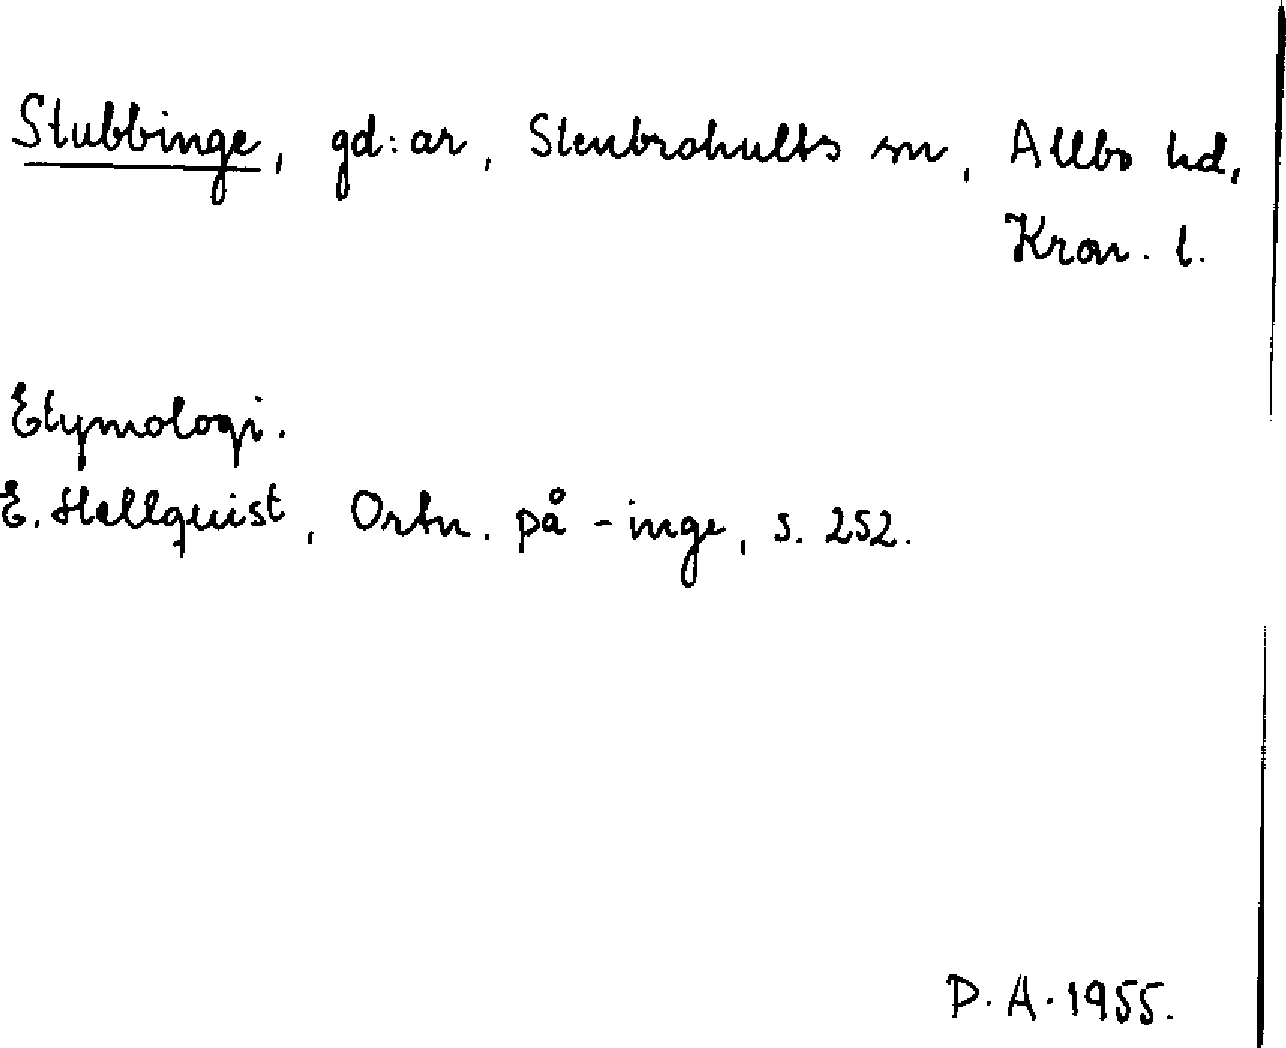 Stubbinge, gd:ar, Stenbrohults sn, Allbo hd,
Kron. l.
Etymologi.
E. Hellquist, Ortn. på -inge, s. 252.
P. A. 1955.